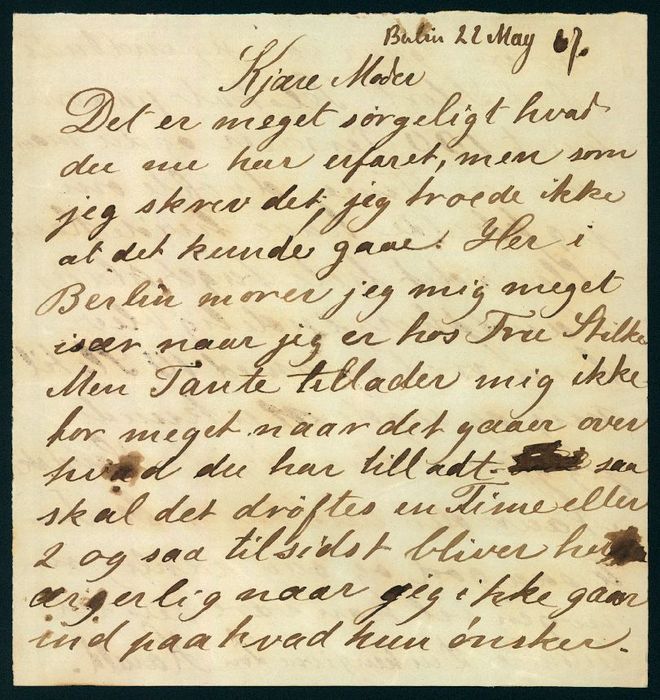 Berlin 22 May 67.
Kjære Moder
Det er meget sørgeligt hvad
du nu har erfaret, men som
jeg skrev det, jeg troede ikke
at det kunde gaae. Her i
Berlin morer jeg mig meget
især naar jeg er hos Fru Stilke
Men Tante tillader mig ikke
for meget naar det gaaer over
hvad du har tilladt saa
skal det drøftes en Time eller
2 og saa tilsidst bliver hun
ærgerlig naar jeg ikke gaar
ind paa hvad hun ønsker.